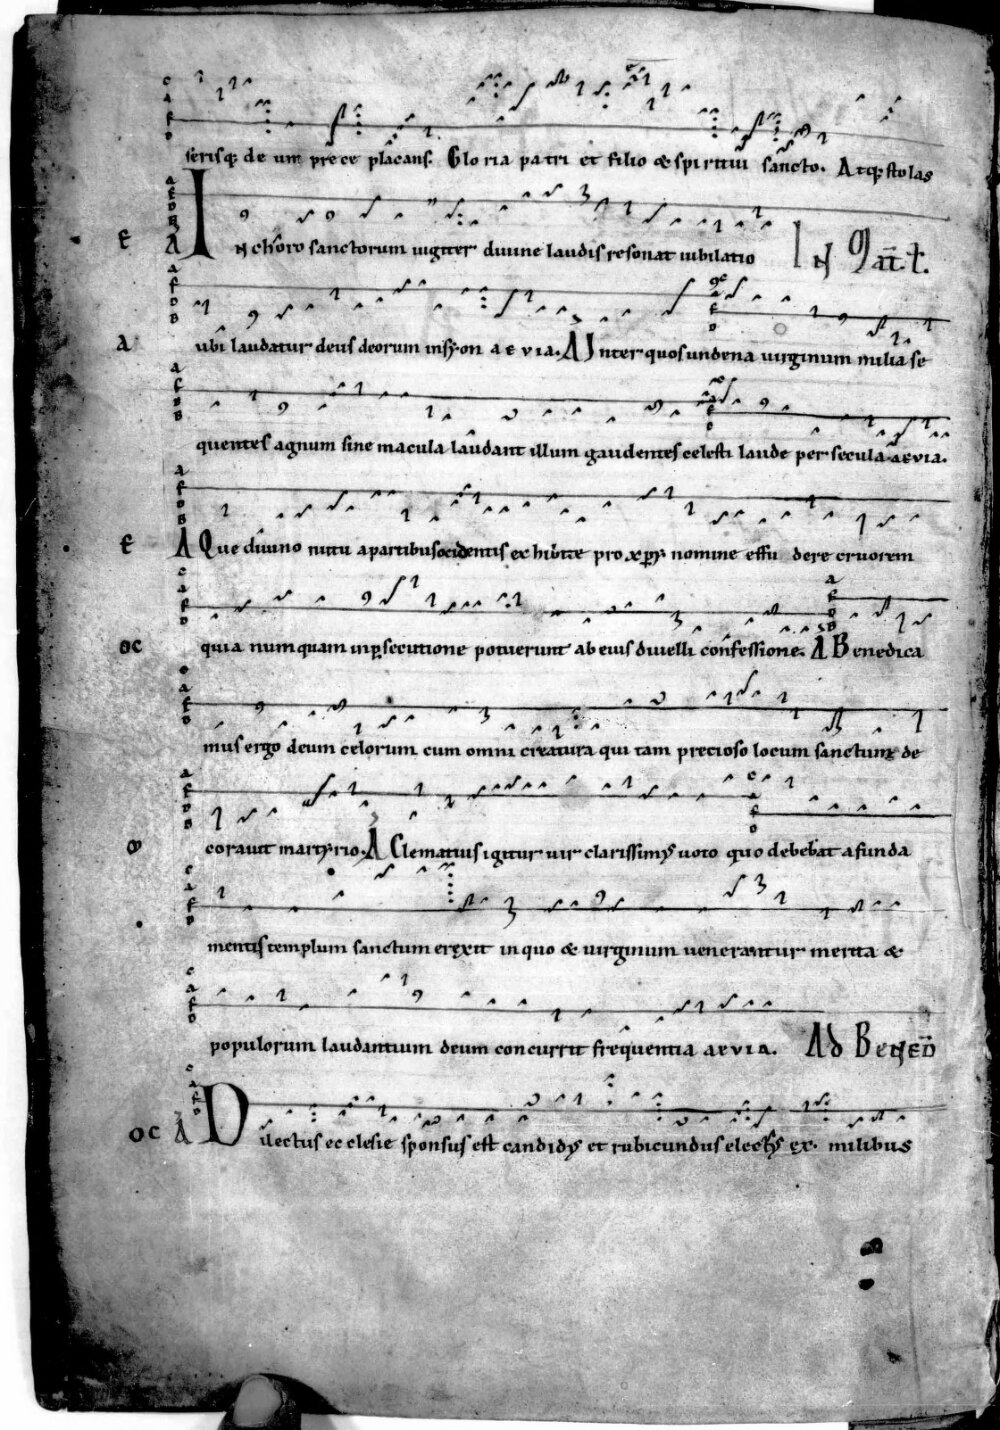 serisq; de um prece placans. Gloria patri et filio & spiritui sancto. Atq; stolas
In choro sanctorum uigiter diuine laudis resonat iubilatio In mat. l.
ubi laudatur deus deorum in syon aevia. A Inter quos undena uirginum milia se
quentes agnum sine macula laudant illum gaudentes celesti laude per secula aevia.
A Que diuino nutu a partibus ocidentis ex hib pro nomine effu dere cruorem
quia numquam in psecutione potuerunt ab eius diuelli confessione. A Benedica
mus ergo deum celorum cum omni creatura qui tam precioso locum sanctum de
corauit martyrio. A Clematius igitur uir clarissimus uoto quo debebat a funda
mentis templum sanctum erexit in quo & uirginum uenerantur merita &
populorum laudantium deum concurrit frequentia aevia. Ad Bened
A Dilectus ecclesie sponsus est candidus et rubicundus electus ex milibus